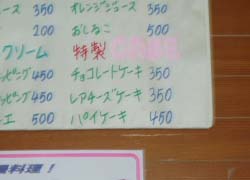 ース 350
オレンジジュース 350
200
おしるこ 500
クリーム
特製
ッピング 450
チョコレートケーキ 350
ッピング 450
レアチーズケーキ 350
ーエ 500
パイケーキ 450
料理！